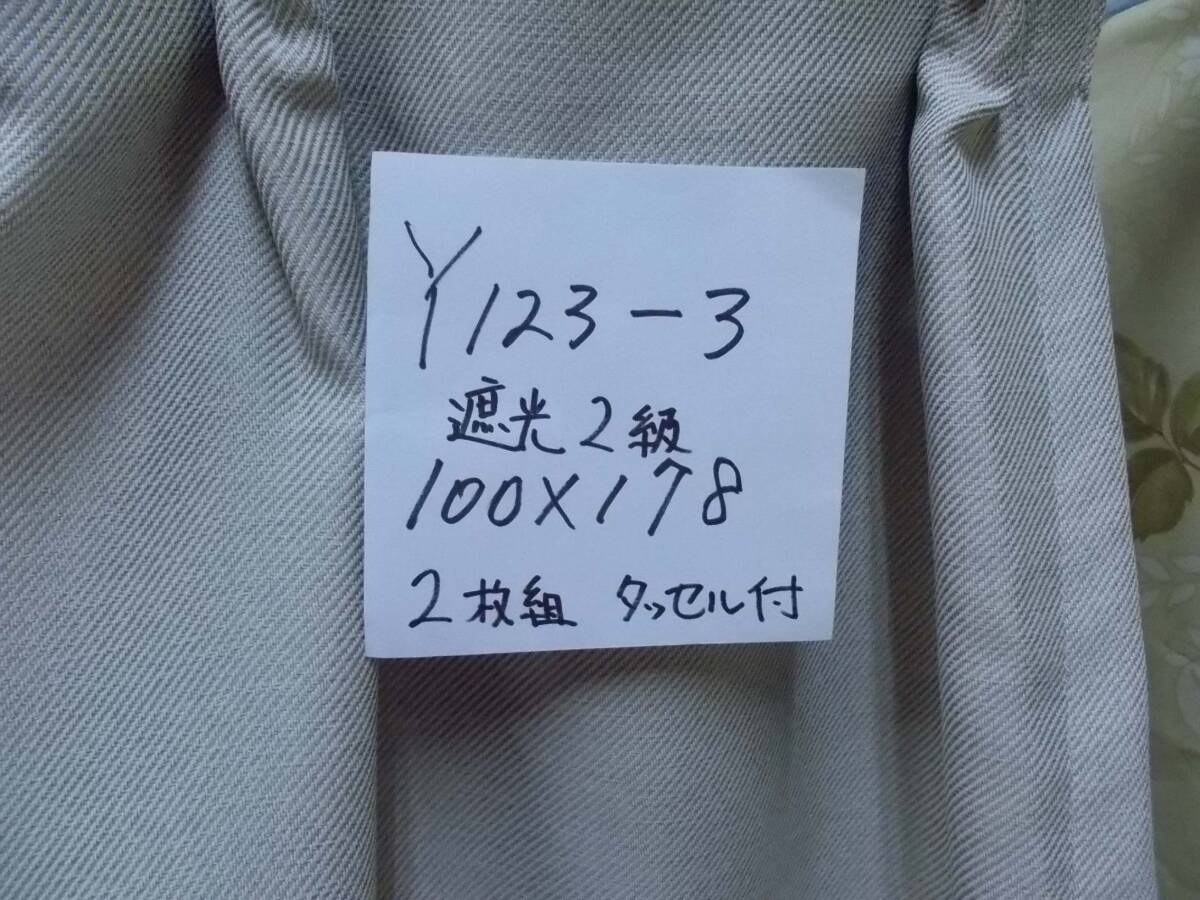 Y123-3
遮光2級
100X178
2枚組 タッセル付